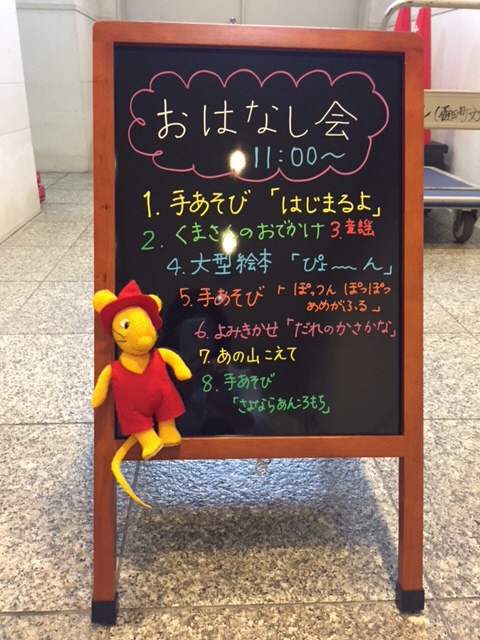 おはなし会
11:00〜
1. 手あそび「はじまるよ」
2. くまさんのおでかけ 3. 童謡
4. 大型絵本「ぴょーん」
5. 手あそび「ぽっつん ぽっぽっ
あめがふる」
6. よみきかせ「だれのかさかな」
7. あの山こえて
8. 手あそび
「さよならあんころもち」